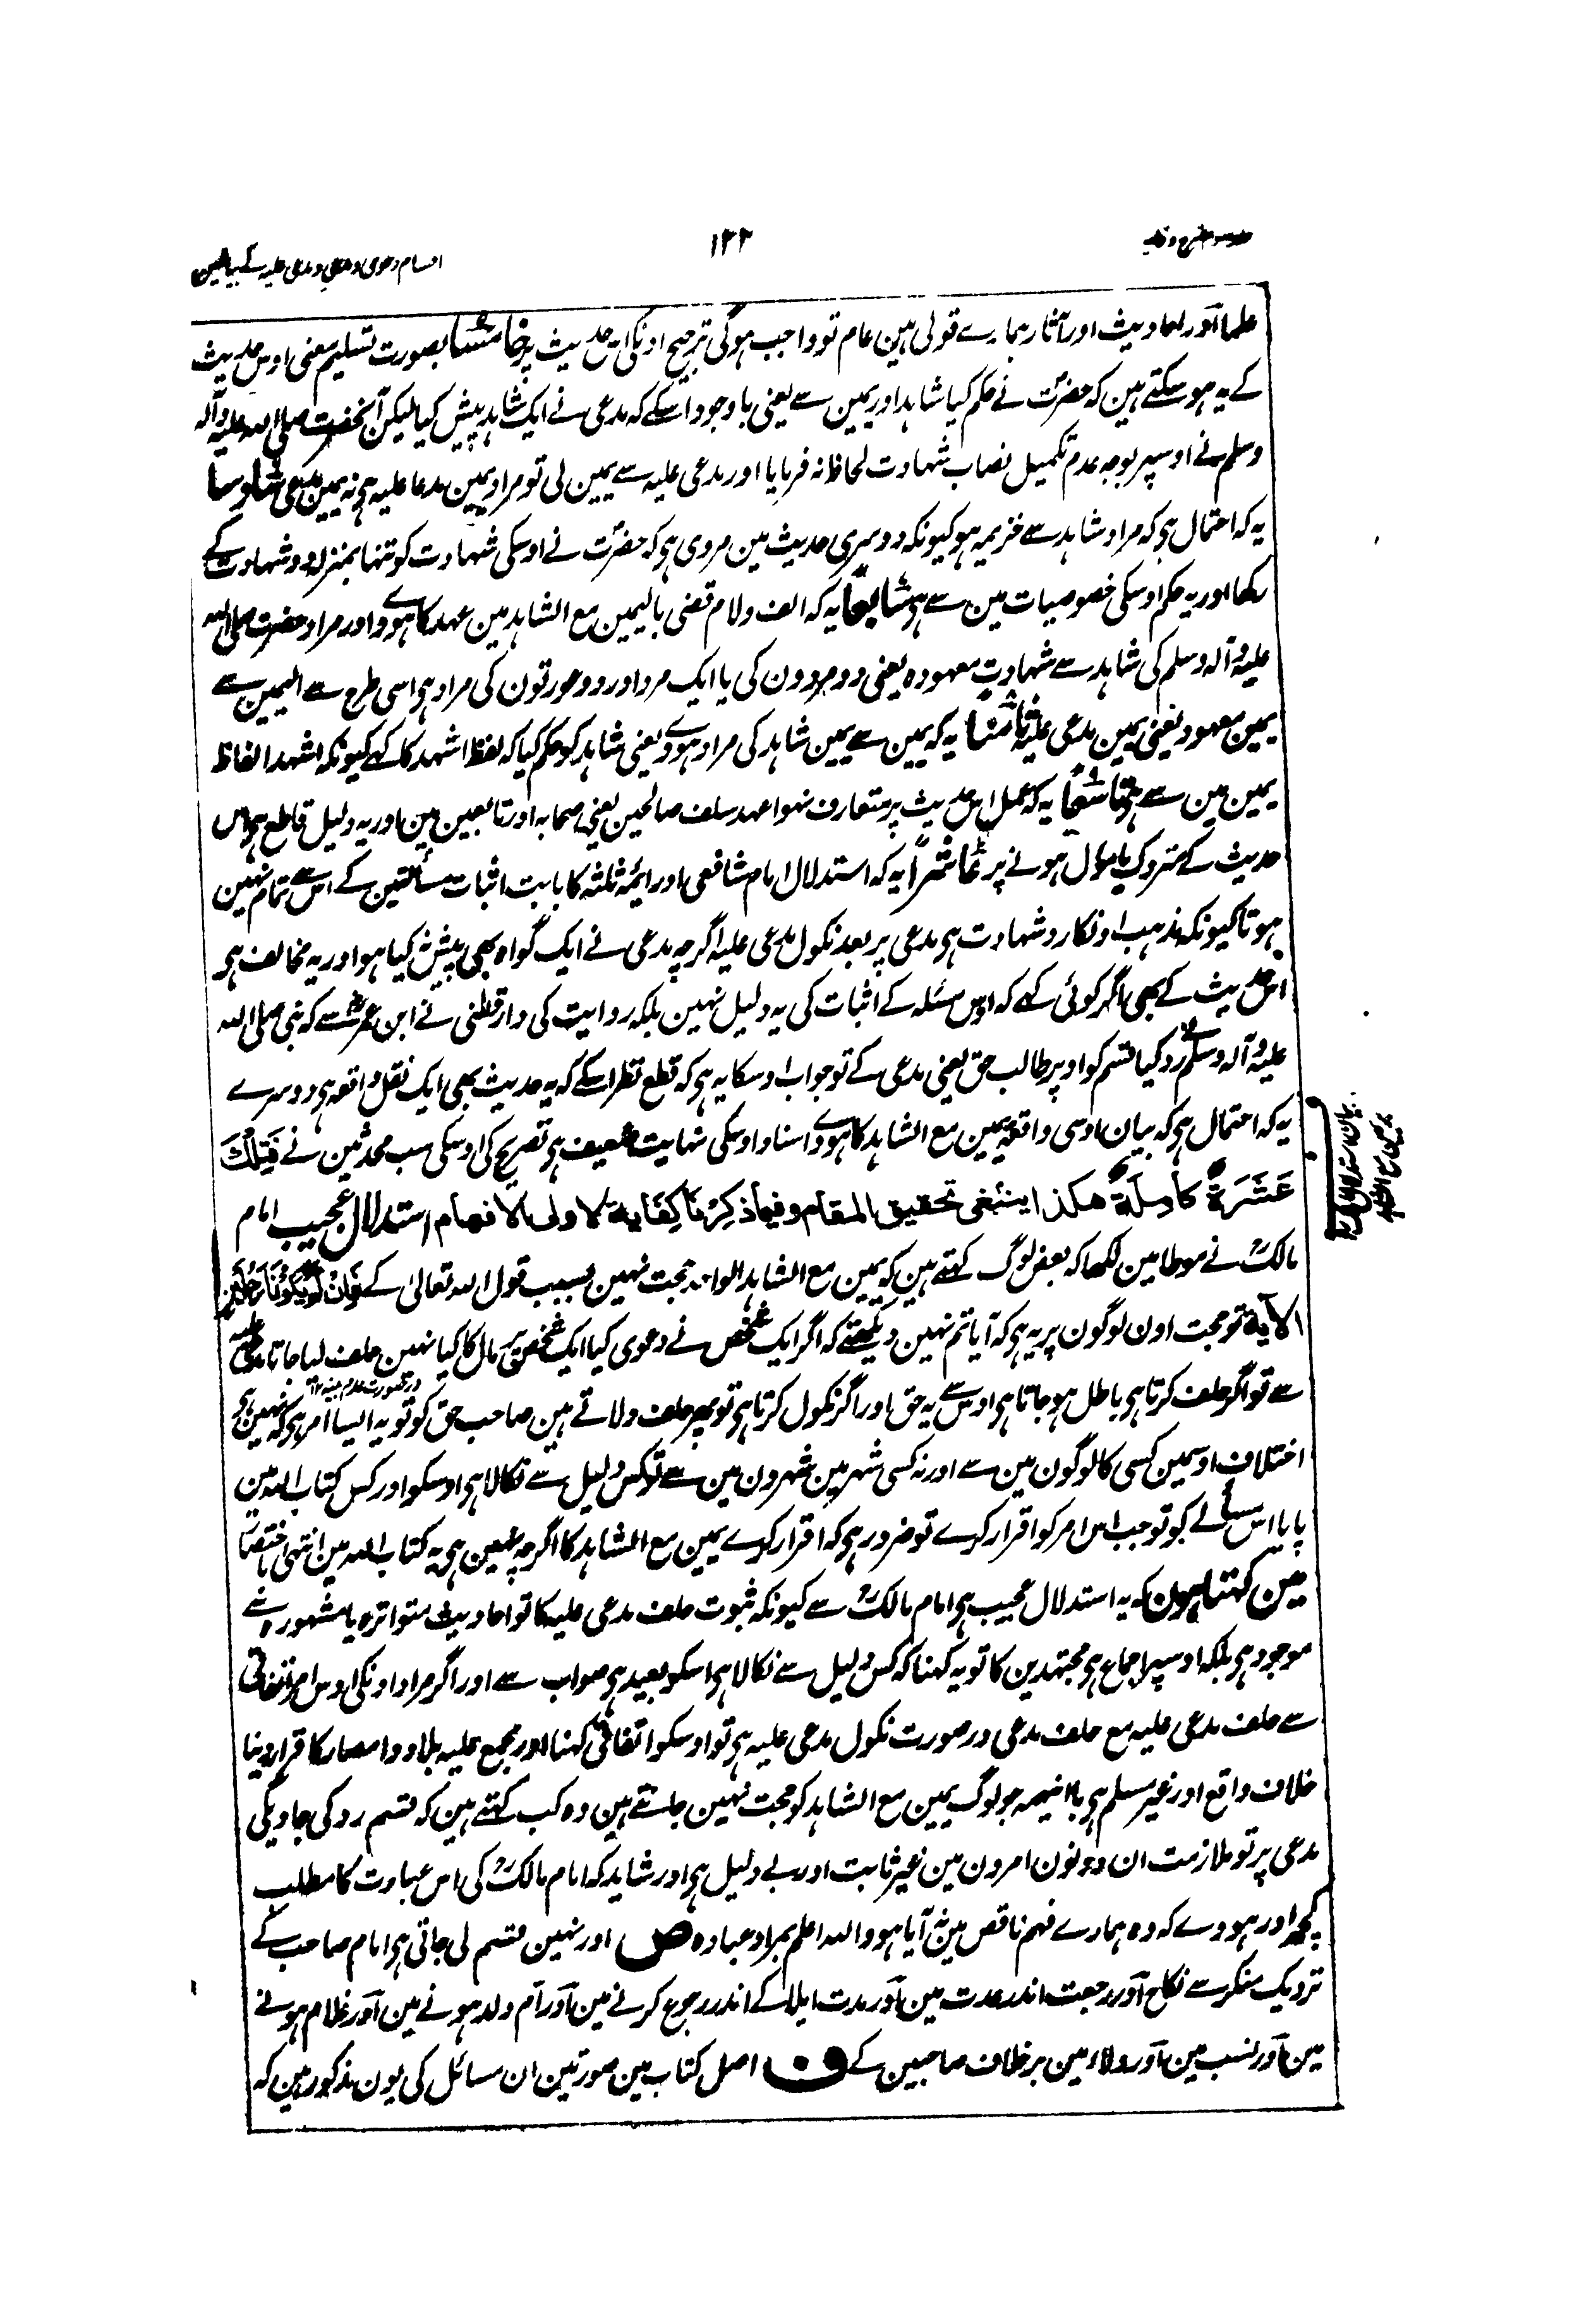 ۱۲۲
اقسام دعوی و مدعی و مدعی علیہ کے بیان مین
علما اور احادیث اور آثار ہمارے قولی ہین عام تو واجب ہوگی ترجیح اونکی اس حدیث پر خامسًا بصورت تسلیم معنی اوس حدیث
کے یہ ہو سکتے ہین کہ حضرت نے حکم کیا شاہد اور یمین سے یعنی باوجود اسکے کہ مدعی نے ایک شاہد پیش کیا لیکن آنحضرت صلی اللہ علیہ وآلہ
وسلم نے اوسپر بوجہ عدم تکمیل نصاب شہادت لحاظ نہ فرمایا اور مدعی علیہ سے یمین لی تو مراد یمین مدعا علیہ ہی نہ یمین مدعی سادسًا
یہ کہ احتمال ہی کہ مراد شاہد سے خزیمہ ہو کیونکہ دوسری حدیث مین مروی ہی کہ حضرت نے اوسکی شہادت کو تنہا بمنزلہ دو شہادت کے
رکھا اور یہ حکم اوسکی خصوصیات مین سے ہی سابعًا یہ کہ الف ولام قضی بالیمین مع الشاہد مین عہد کا ہووے اور مراد حضرت صلی اللہ
علیہ وآلہ وسلم کی شاہد سے شہادت معہودہ یعنی دو مردون کی یا ایک مرد اور دو عورتون کی مراد ہی اسی طرح سے الیمین سے
یمین معہود یعنی یمین مدعی علیہ ثامنًا یہ کہ یمین سے یمین شاہد کی مراد ہووے یعنی شاہد کو حکم کیا کہ لفظ اشہد کا کہے کیونکہ اشہد الفاظ
یمین مین سے ہی تاسعًا یہ کہ عمل اس حدیث پر متعارف نہوا عہد سلف صالحین یعنی صحابہ اور تابعین مین اور یہ دلیل قاطع ہی اس
حدیث کے متروک یا مؤول ہونے پر عاشرًا یہ کہ استدلال امام شافعی اور ائمہ ثلثہ کا بابت اثبات مسألتین کے اس سے تمام نہین
ہوتا کیونکہ مذہب اونکا رد شہادت ہی مدعی پر بعد نکول مدعی علیہ اگرچہ مدعی نے ایک گواہ بھی پیش کیا ہو اور یہ مخالف ہی
اس حدیث کے بھی اگر کوئی کہے کہ اوس مسئلہ کے اثبات کی یہ دلیل نہین بلکہ روایت کی دارقطنی نے ابن عمر سے کہ نبی صلی اللہ
علیہ وآلہ وسلم نے رد کیا قسم کو اوپر طالب حق یعنی مدعی کے تو جواب اوسکا یہ ہی کہ قطع نظر اسکے کہ یہ حدیث بھی ایک نقل واقعہ ہی دوسرے
یہ کہ احتمال ہی کہ بیان اوسی واقعہ یمین مع الشاہد کا ہووے اسناد اوسکی نہایت ضعیف ہی تصریح کی اوسکی سب محدثین نے فَتِلْكَ
عَشَرَةٌ كَامِلَةٌ هكذا ينبغى تحقيق المقام وفيما ذكرنا كفاية لاولى الافهام استدلال عجیب امام
مالکؒ نے موطا مین لکھا کہ بعض لوگ کہتے ہین کہ یمین مع الشاہد الواحد حجت نہین بسبب قول اللہ تعالی کے فَاِنْ لَّمْ يَكُوْنَا رَجُلَيْنِ
الآية تو حجت اون لوگون پر یہ ہی کہ آیا تم نہین دیکھتے کہ اگر ایک شخص نے دعوی کیا ایک شخص پر مال کا کیا نہین حلف لیا جاتا مدعی علیہ
سے تو اگر حلف کرتا ہی باطل ہو جاتا ہی اوس سے یہ حق اور اگر نکول کرتا ہی تو پھر حلف دلاتے ہین صاحب حق کو تو یہ ایسا امر ہی کہ نہین ہی
اختلاف اوسمین کسی کا لوگون مین سے اور نہ کسی شہر مین شہرون مین سے تو کس دلیل سے نکالا ہی اوسکو اور کس کتاب اللہ مین
پایا اس مسألے کو تو جب اس امر کو اقرار کرے تو ضرور ہی کہ اقرار کرے یمین مع الشاہد کا اگرچہ نہین ہی یہ کتاب اللہ مین انتہی باختصار
مین کہتا ہون کہ یہ استدلال عجیب ہی امام مالکؒ سے کیونکہ ثبوت حلف مدعی علیہ کا تو احادیث متواترہ یا مشہورہ سے
موجود ہی بلکہ اوسپر اجماع ہی مجتہدین کا تو یہ کہنا کہ کس دلیل سے نکالا ہی اسکو بعید ہی صواب سے اور اگر مراد اونکی اوس امر اتفاقی
سے حلف مدعی علیہ مع حلف مدعی در صورت نکول مدعی علیہ ہی تو اوسکو اتفاقی کہنا اور مجمع علیہ بلاد و امصار کا قرار دینا
خلاف واقع اور غیر مسلم ہی با اینہمہ جو لوگ یمین مع الشاہد کو حجت نہین جانتے ہین وہ کب کہتے ہین کہ قسم رد کی جاویگی
مدعی پر تو ملازمت ان دونون امرون مین غیر ثابت اور بے دلیل ہی اور شاید کہ امام مالکؒ کی اس عبارت کا مطلب
کچھ اور ہووے کہ وہ ہمارے فہم ناقص مین نہ آیا ہو واللہ اعلم بمراد عبادہ ص اور نہین قسم لی جاتی ہی امام صاحب کے
نزدیک منکر سے نکاح اور رجعت اندر عدت مین اور مدت ایلا کے اندر رجوع کرنے مین اور ام ولد ہونے مین اور غلام ہونے
مین اور نسب مین اور ولاء مین برخلاف صاحبین کے ف اصل کتاب مین صورتین ان مسائل کی یون مذکور ہین کہ